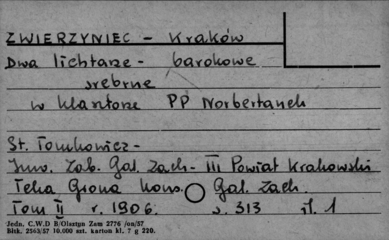 ZWIERZYNIEC - Kraków
Dwa lichtarze - barokowe
srebrne
w klasztorze PP Norbertanek
St. Tomkowicz -
Inw. Zab. Gal. Zach. - III Powiat Krakowski
Teka Grona Kons. Gal. Zach.
Tom II r. 1906. s. 313 il. 1
Jedn. C.W.D B/Olsztyn Zam 2776 /on/57
Blbk. 2563/57 10.000 szt. karton kl. 7 g 220.